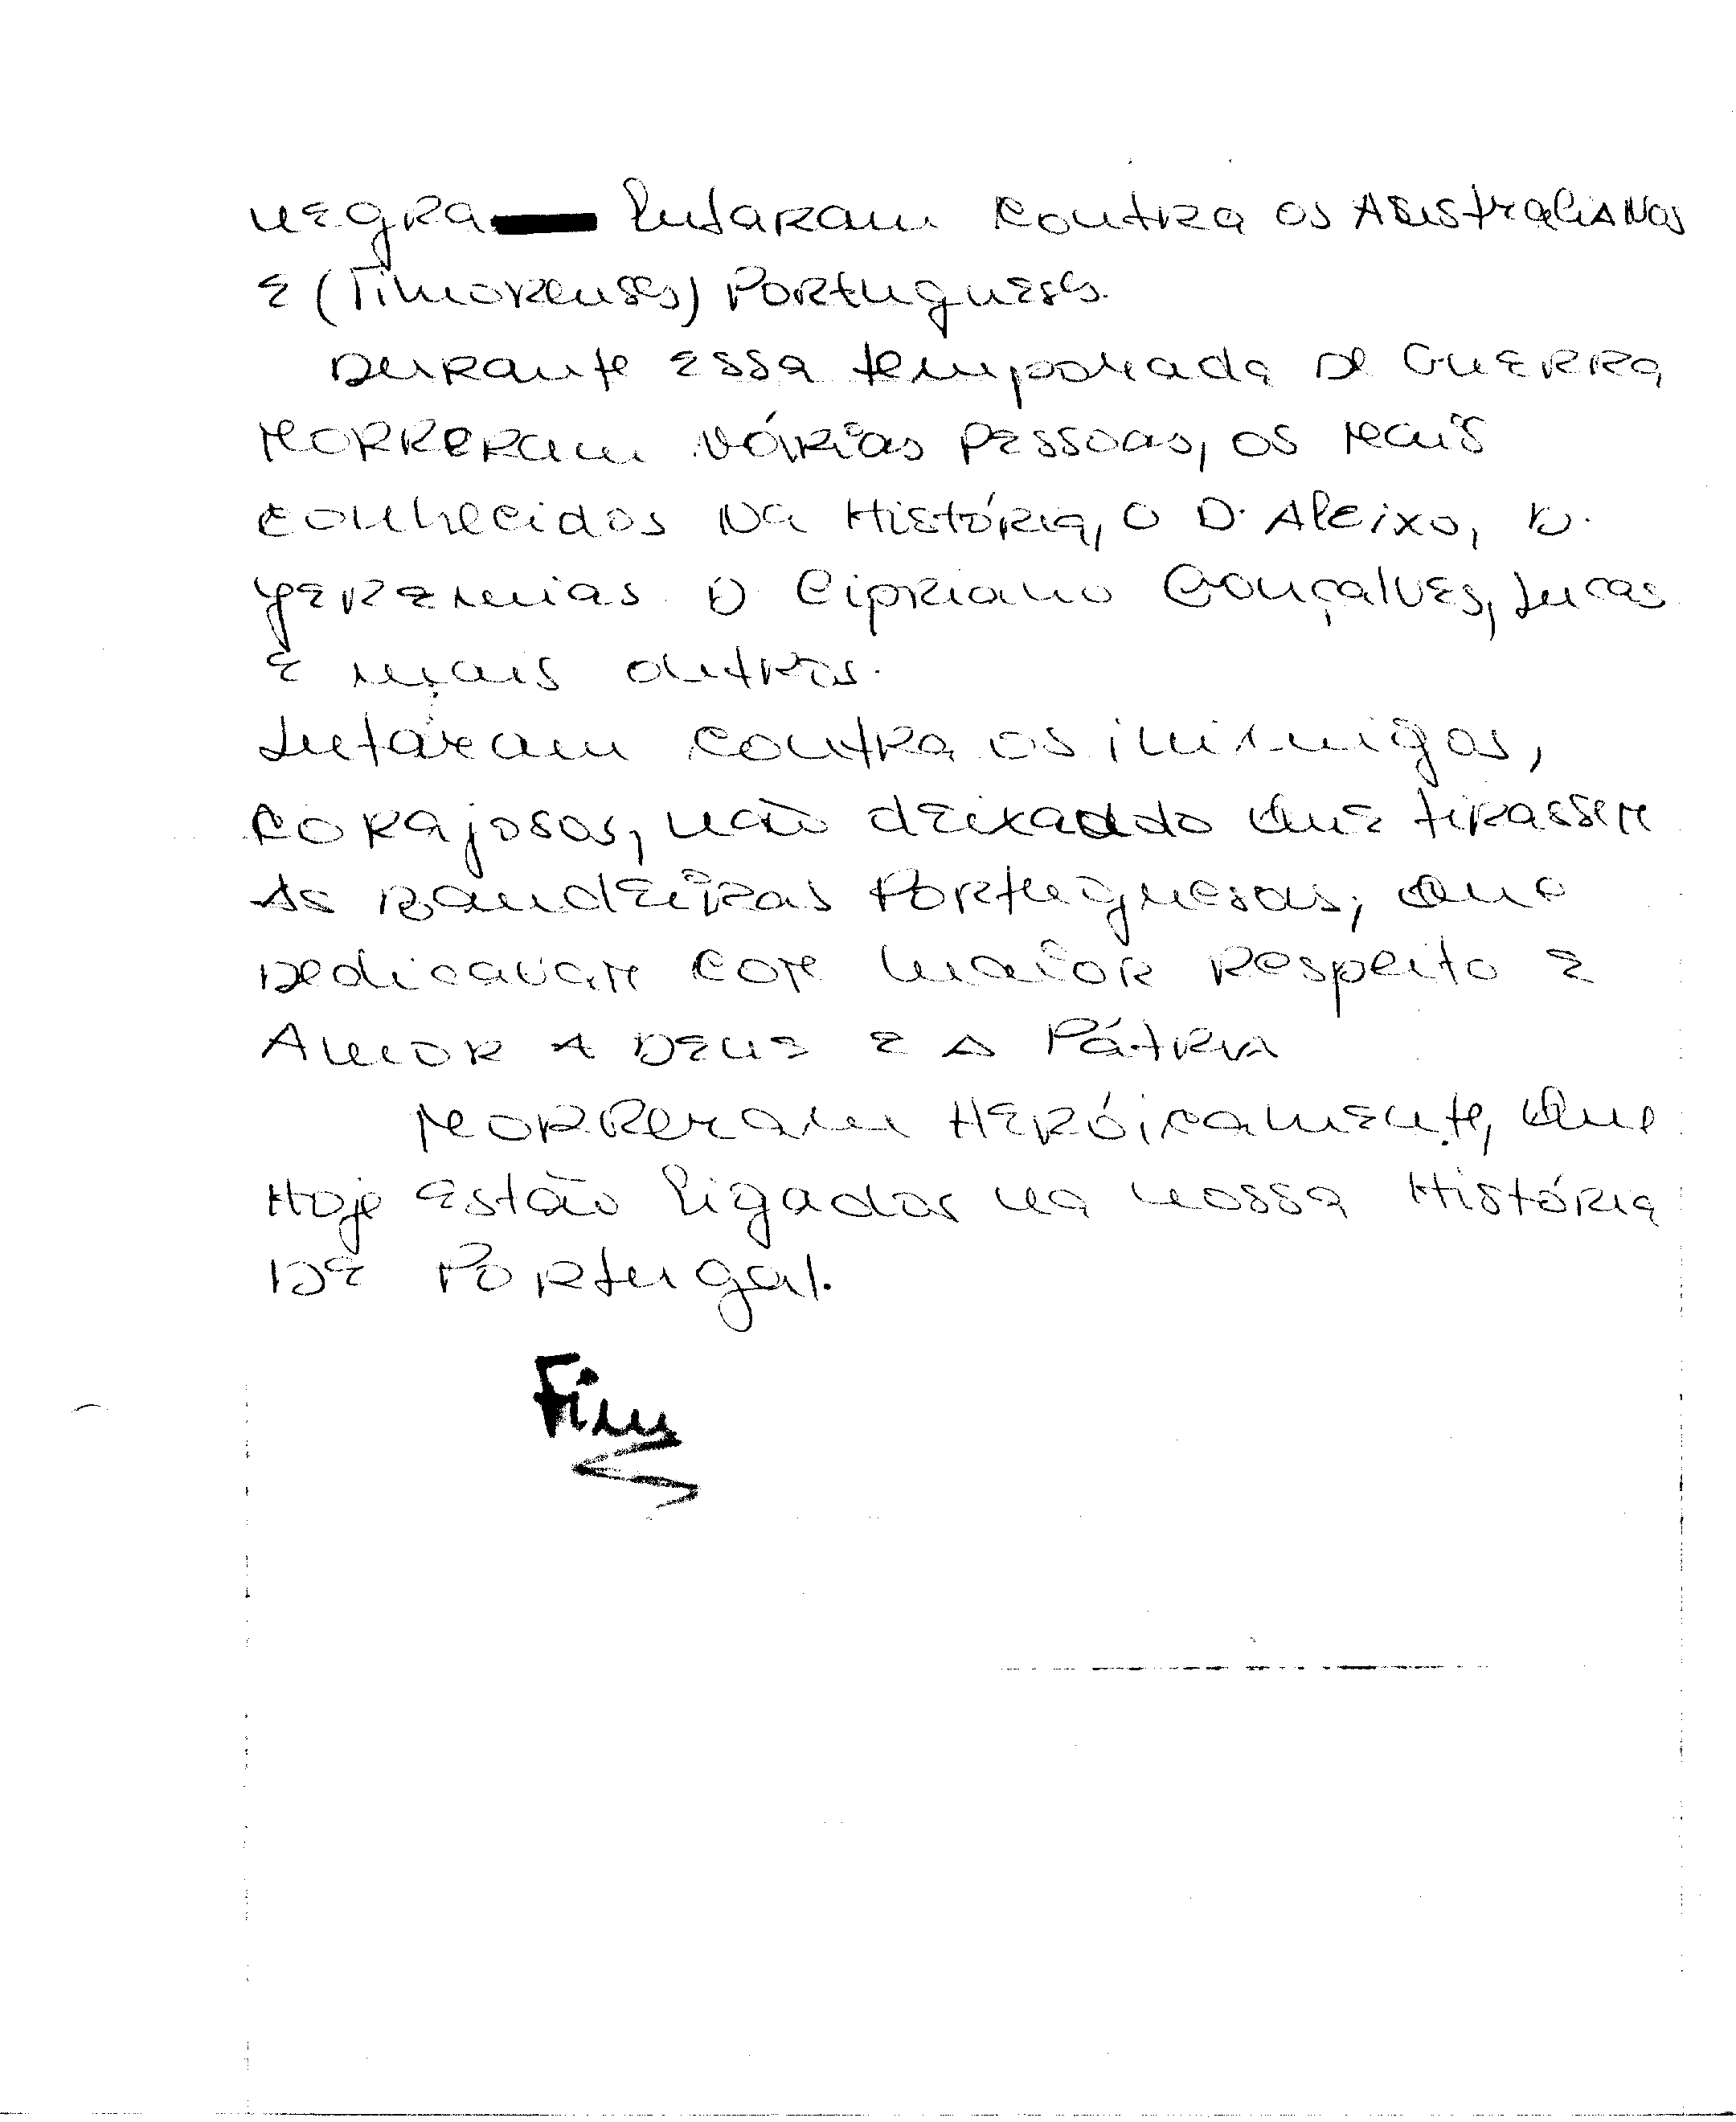 negra lutaram contra os Australianos
e (Timorenses) Portugueses.
Durante essa temporada de Guerra
morreram várias pessoas, os mais
conhecidos na História, o D. Aleixo, D.
Yeremias D Cipriano Gonçalves, Lucas
e mais outros.
Lutaram contra os inimigos,
corajosos, não deixando que tirassem
As Bandeiras Portuguesas, que
Dedicavam com maior respeito e
Amor a Deus e a Pátria
Morreram Heróicamente, que
Hoje estão ligados na nossa História
De Portugal.
Fim